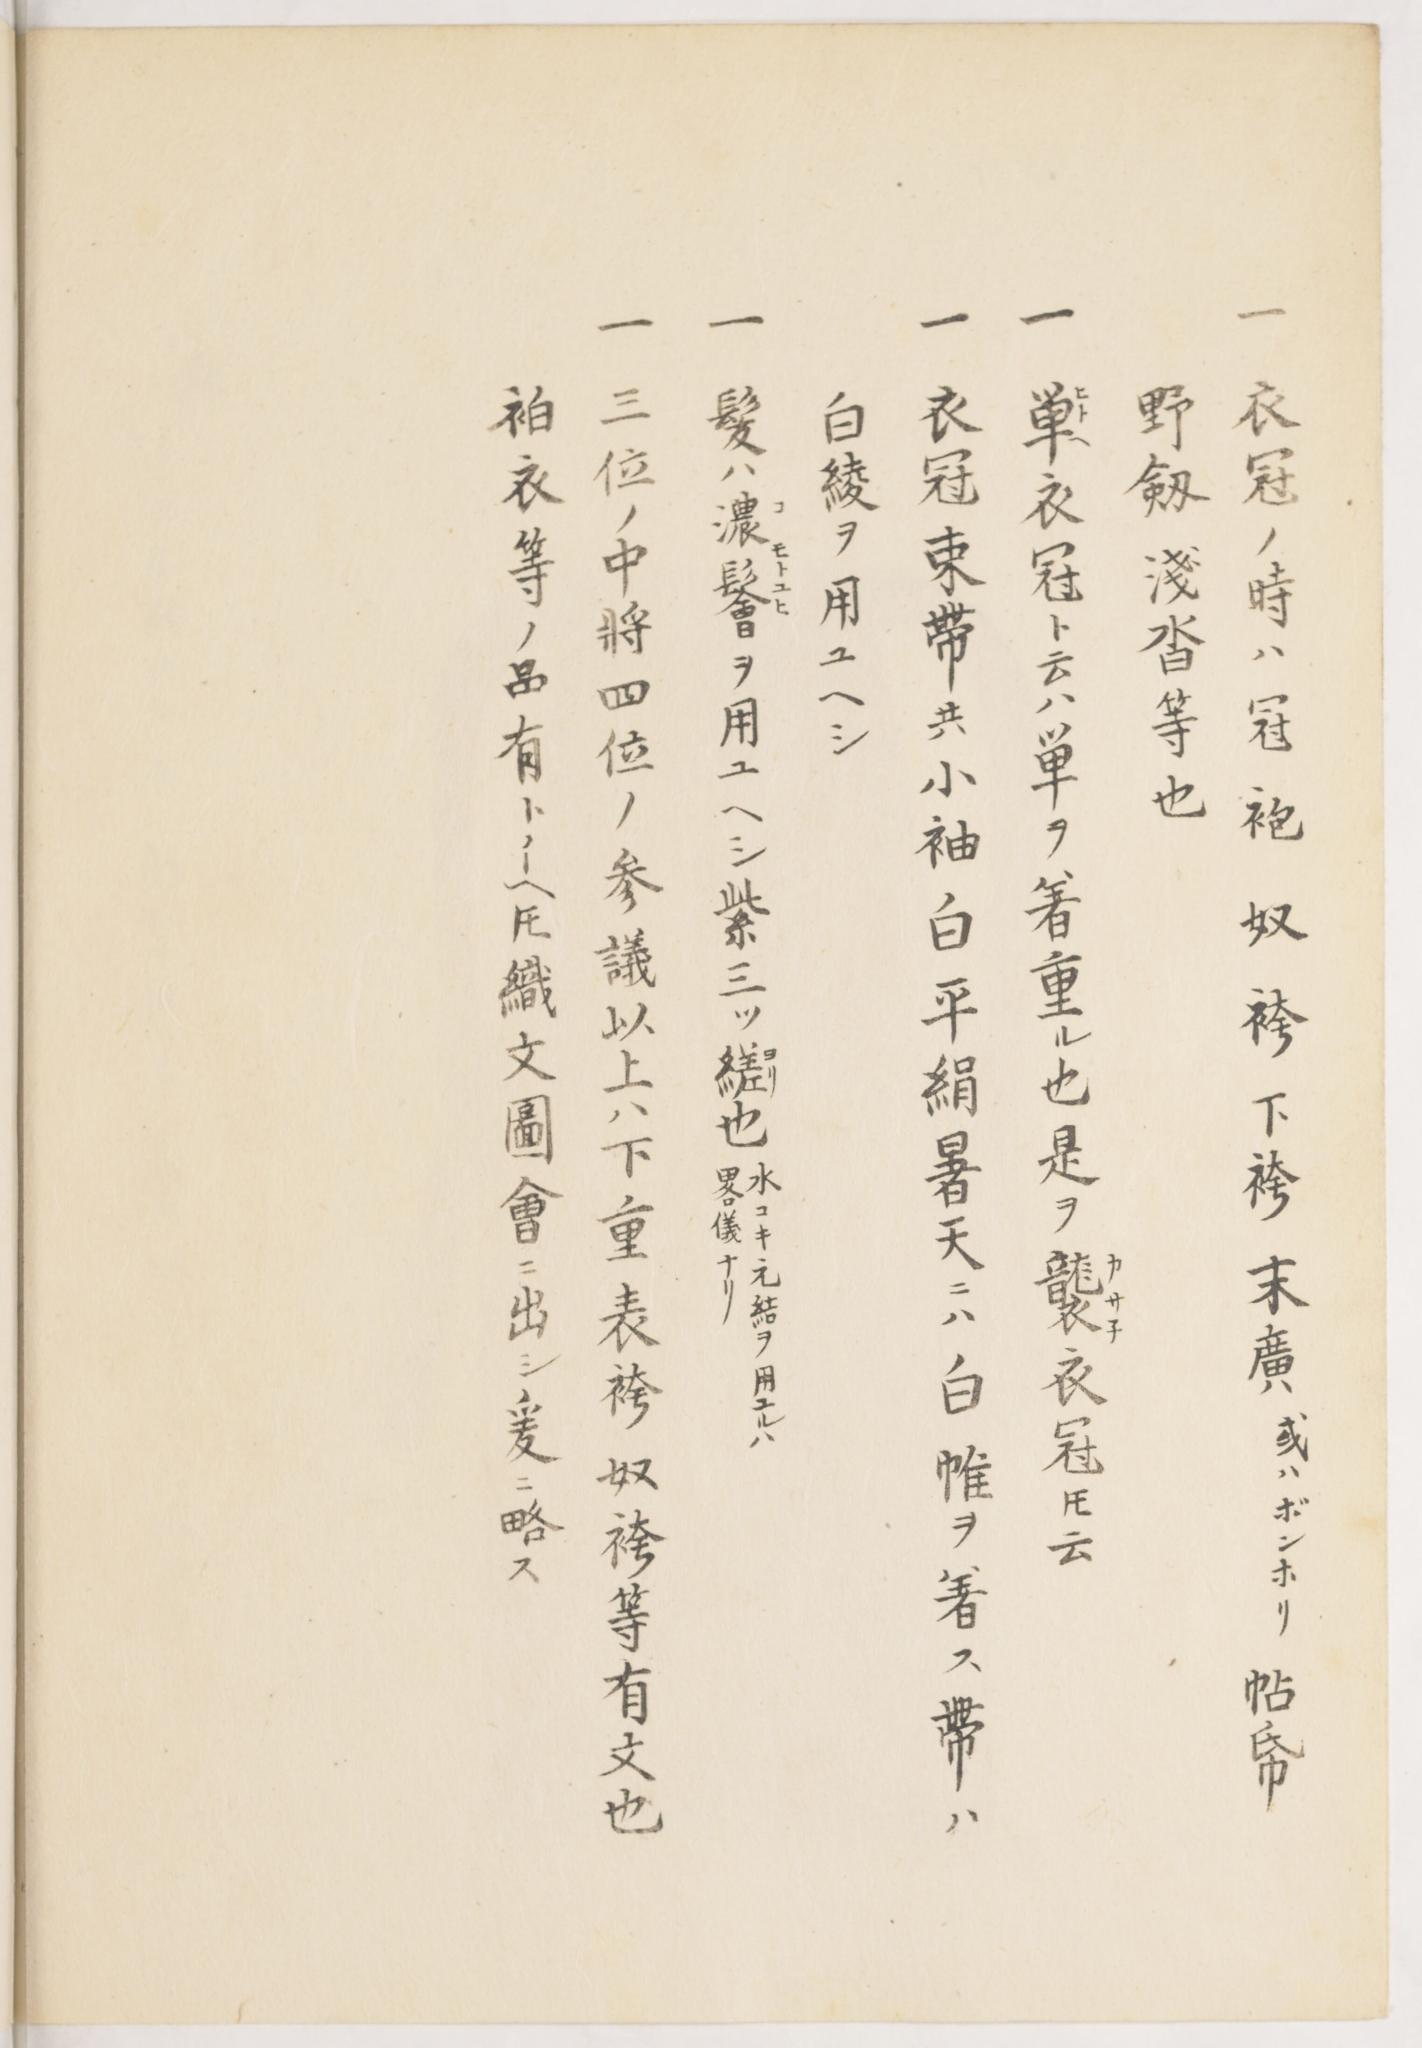 一 衣冠ノ時ハ冠 袍 奴袴 下袴 末廣 或ハボンホリ 帖帋
野劔 淺沓等也
一 単衣冠ト云ハ単ヲ着重ル也是ヲ襲衣冠𪜈云
ヒトヘ
カサ子
一 衣冠束帶共小袖白平絹暑天ニハ白帷ヲ着ス帶ハ
白綾ヲ用ユヘシ
一 髪ハ濃鬠ヲ用ユヘシ紫三ツ縒也
コ モトユヒ
ヨリ
水コキ元結ヲ用ユルハ
畧儀ナリ
一 三位ノ中將四位ノ参議以上ハ下重表袴奴袴等有文也
袙衣等ノ品有トイヘ𪜈織文圖會ニ出シ爰ニ略ス